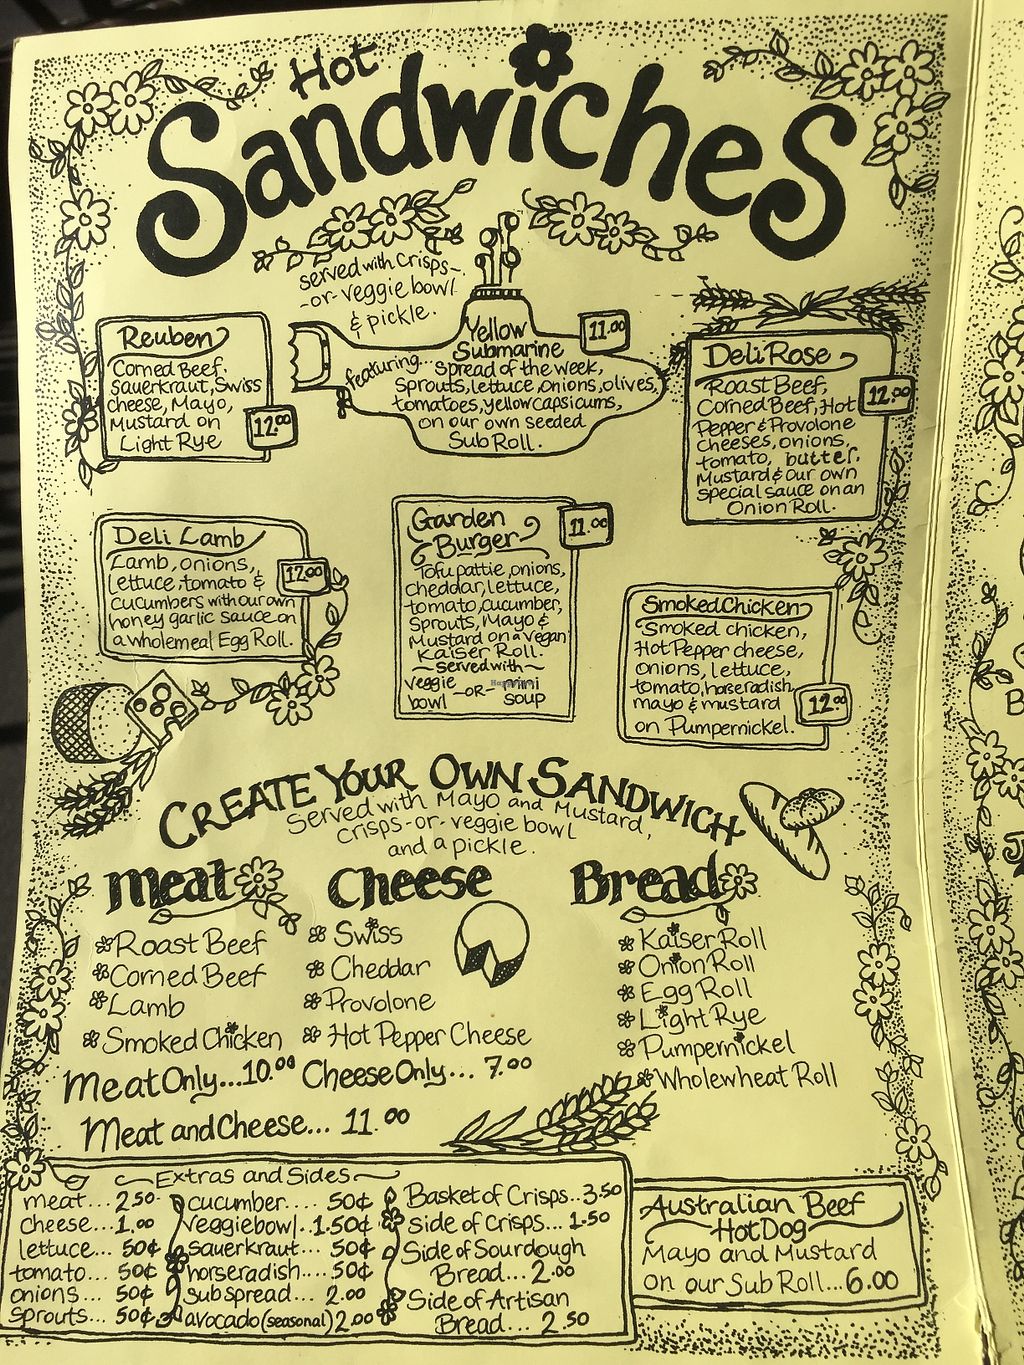 Hot
Sandwiches
served with Crisps-
-or- veggie bowl
& pickle.
Reuben
Corned Beef,
sauerkraut, Swiss
cheese, Mayo,
Mustard on
Light Rye
12.00
Yellow
Submarine
11.00
featuring...
Spread of the week,
Sprouts, lettuce, onions, olives,
tomatoes, yellow capsicums,
on our own seeded
Sub Roll.
Deli Rose
12.00
Roast Beef,
Corned Beef, Hot
Pepper & Provolone
cheeses, onions,
tomato, butter.
Mustard & our own
special sauce on an
Onion Roll.
Deli Lamb
12.00
Lamb, onions,
lettuce, tomato &
cucumbers with our own
honey garlic sauce on
a wholemeal Egg Roll.
Garden
Burger
11.00
Tofu pattie, onions,
cheddar, lettuce,
tomato, cucumber,
Sprouts, Mayo &
Mustard on a vegan
Kaiser Roll.
~ served with ~
veggie -OR- mini
bowl soup
Smoked Chicken
Smoked chicken,
Hot Pepper cheese,
onions, lettuce,
tomato, horseradish,
mayo & mustard
on Pumpernickel.
12.00
CREATE YOUR OWN SANDWICH
Served with Mayo and Mustard,
crisps -or- veggie bowl
and a pickle.
Meat
Roast Beef
Corned Beef
Lamb
Smoked Chicken
Meat Only...10.00
Cheese
Swiss
Cheddar
Provolone
Hot Pepper Cheese
Cheese Only... 7.00
Meat and Cheese... 11.00
Bread
Kaiser Roll
Onion Roll
Egg Roll
Light Rye
Pumpernickel
Wholewheat Roll
Extras and Sides
meat...2.50
cheese...1.00
lettuce... 50¢
tomato... 50¢
onions... 50¢
sprouts... 50¢
cucumber.... 50¢
veggie bowl..1.50¢
sauerkraut... 50¢
horseradish.... 50¢
sub spread... 2.00
avocado (seasonal) 2.00
Basket of Crisps..3.50
Side of Crisps... 1.50
Side of Sourdough
Bread... 2.00
Side of Artisan
Bread... 2.50
Australian Beef
Hot Dog
Mayo and Mustard
on our Sub Roll...6.00